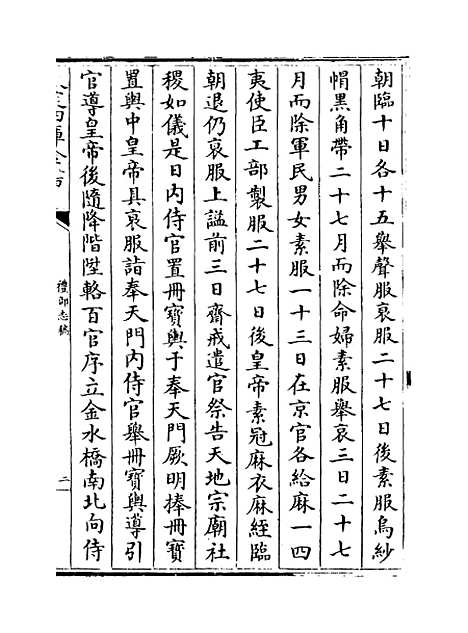 朝臨十日各十五舉聲服衰服二十七日後素服烏紗
帽黑角帶二十七月而除命婦素服舉哀三日二十七
月而除軍民男女素服一十三日在京官各給麻一四
夷使臣工部製服二十七日後皇帝素冠麻衣麻絰臨
朝退仍衰服上諡前三日齋戒遣官祭告天地宗廟社
稷如儀是日內侍官置冊寶輿于奉天門厥明捧冊寶
置輿中皇帝具衰服詣奉天門內侍官舉冊寶輿導引
官導皇帝後隨降階陞輅百官序立金水橋南北向侍
禮部志稿
二